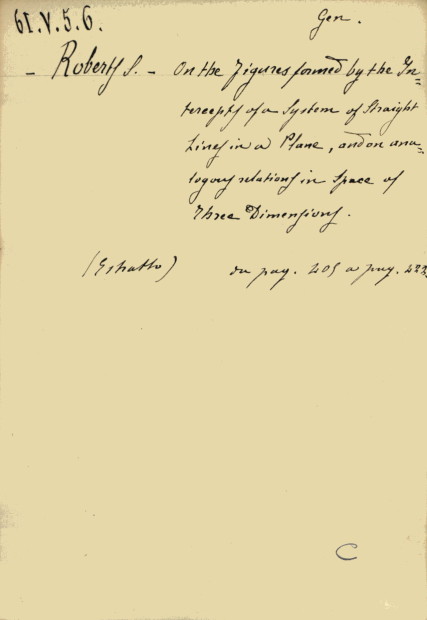 61.V.5.6.
Gen.
- Roberts S. - On the Figures formed by the In=
tercepts of a System of Straight
Lines in a Plane, and on ana=
logous relations in Space of
Three Dimensions.
(Estratto) da pag. 405 a pag. 422.
C